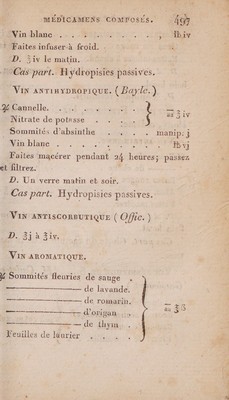 MÉDICAMENS COMPOSÉS. 497
Vin blanc . . . . . . . . , ℔iv
Faites infuser à froid.
D. ℥iv le matin.
Cas part. Hydropisies passives.
VIN ANTIHYDROPIQUE. (Bayle.)
℞ Cannelle. . . . . . . . }
Nitrate de potasse . . . . } aa ℥iv
Sommités d'absinthe . . . . manip. j
Vin blanc . . . . . . . . ℔vj
Faites macérer pendant 24 heures; passez
et filtrez.
D. Un verre matin et soir.
Cas part. Hydropisies passives.
VIN ANTISCORBUTIQUE (Offic.)
D. ℥j à ℥iv.
VIN AROMATIQUE.
℞ Sommités fleuries de sauge .
——— de lavande.
——— de romarin.
——— d'origan . } aa ℥ß
——— de thym .
Feuilles de laurier . . . .